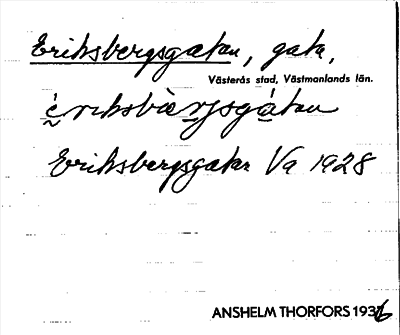 Eriksbergsgatan, gata,
Västerås stad, Västmanlands län.
èriksbàrjsgátan
Eriksbergsgatan Va 1928
ANSHELM THORFORS 1936